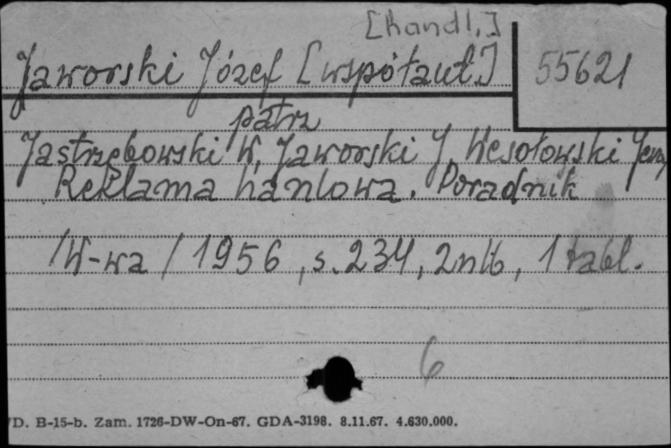 [handl.]
Jaworski Józef [współaut.] 55621
patrz
Jastrzębowski W, Jaworski J, Wesołowski Jerzy
Reklama hanlowa. Poradnik
/W-wa / 1956, s. 234, 2nlb, 1 tabl.
6
D. B-15-b. Zam. 1726-DW-On-67. GDA-3198. 8.11.67. 4.630.000.